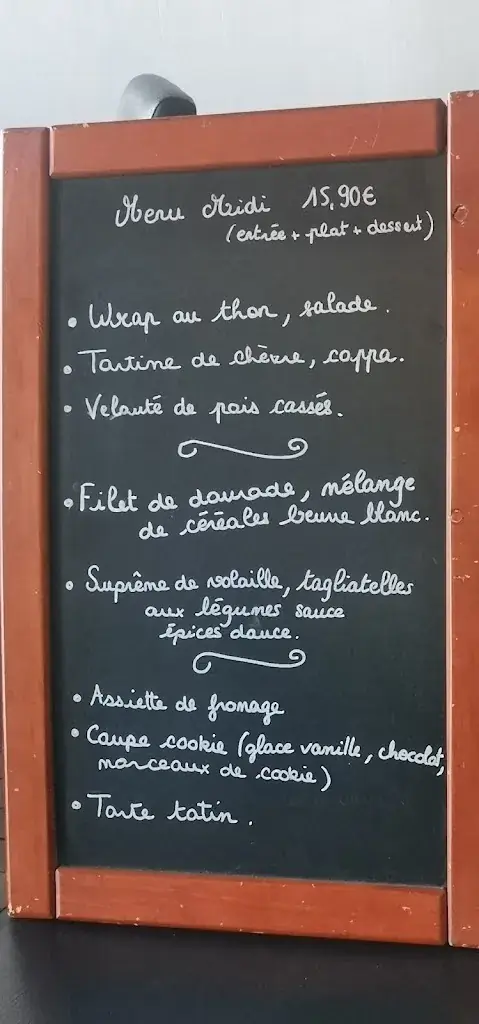 Menu Midi 15,90€
(entrée + plat + dessert)
• Wrap au thon, salade.
• Tartine de chèvre, coppa.
• Velouté de pois cassés.
• Filet de daurade, mélange
de céréales beurre blanc.
• Suprême de volaille, tagliatelles
aux légumes sauce
épices douce.
• Assiette de fromage
• Coupe cookie (glace vanille, chocolat,
morceaux de cookie)
• Tarte tatin.